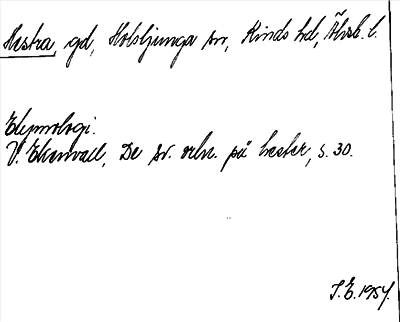 Hestra, gd, Holsljunga sn, Kinds hd, Älvsb. l.
Etymologi.
V. Ekenvall, De sv. ortn. på hester, s. 30.
I.E. 1954.